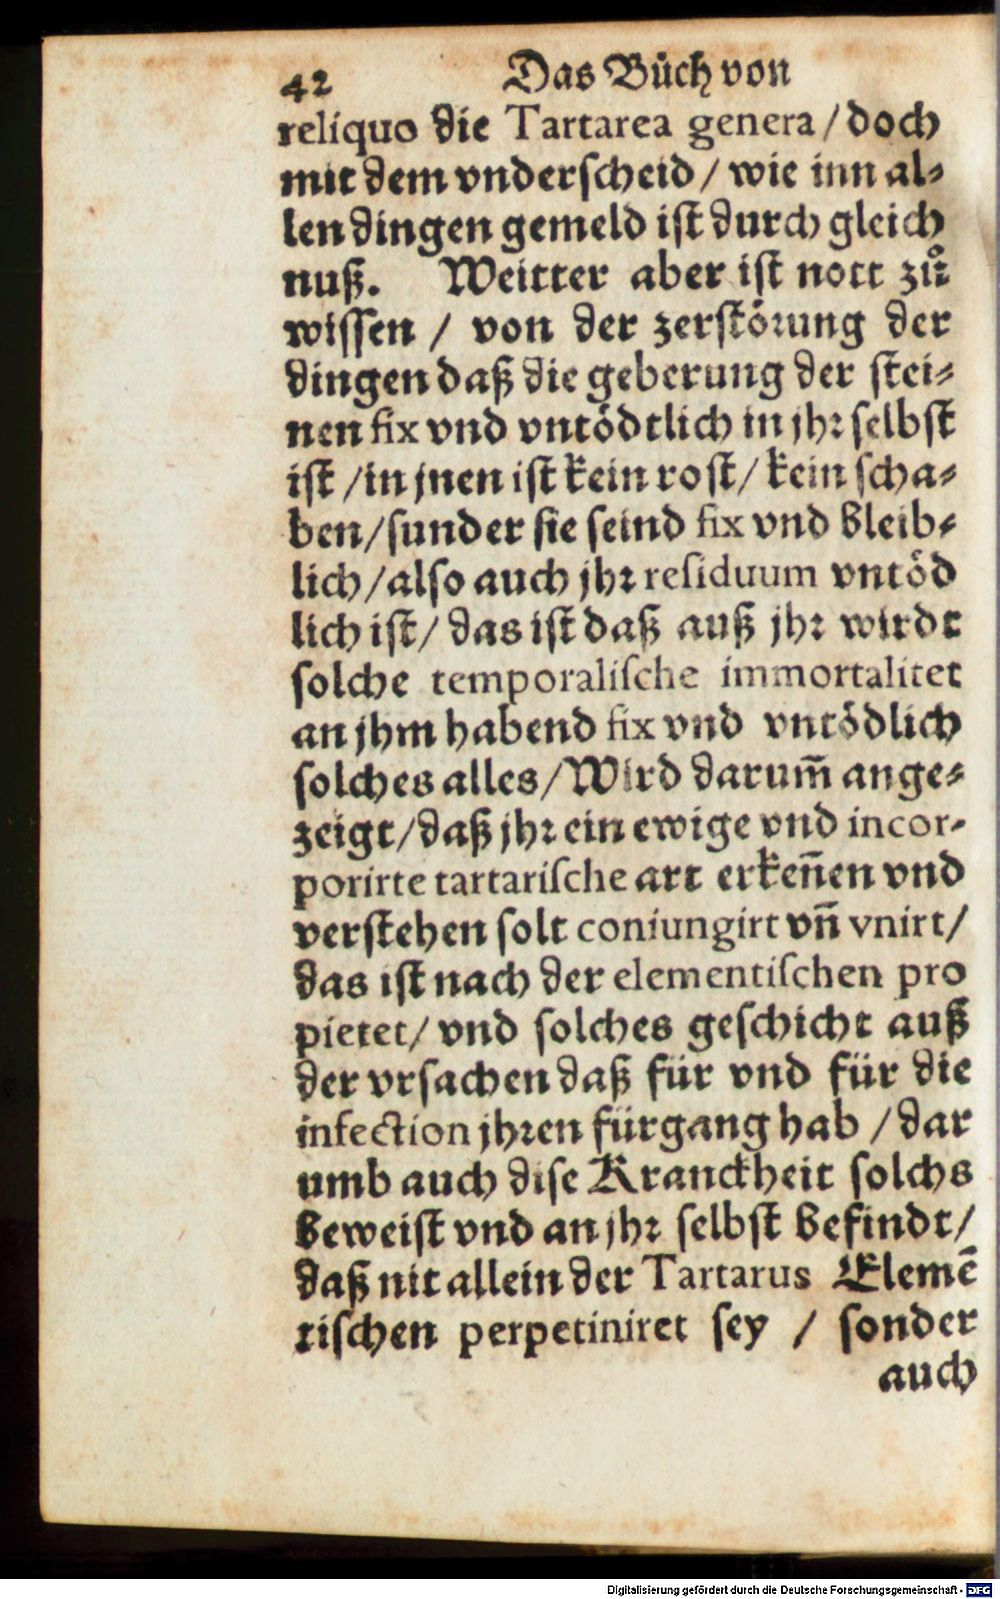 42 Das Bůch von
reliquo die Tartarea genera / doch
mit dem vnderscheid / wie inn al⸗
len dingen gemeld ist durch gleich
nuß. Weitter aber ist nott zů
wissen / von der zerstörung der
dingen daß die geberung der stei⸗
nen fix vnd vntödtlich in jhr selbst
ist / in jnen ist kein rost / kein scha⸗
ben / sunder sie seind fix vnd bleib⸗
lich / also auch jhr residuum vntöd
lich ist / das ist daß auß jhr wirdt
solche temporalische immortalitet
an jhm habend fix vnd vntödlich
solches alles / Wird darum̃ ange⸗
zeigt / daß jhr ein ewige vnd incor-
porirte tartarische art erkeñen vnd
verstehen solt coniungirt vñ vnirt /
das ist nach der elementischen pro
pietet / vnd solches geschicht auß
der vrsachen daß für vnd für die
infection jhren fürgang hab / dar
umb auch dise Kranckheit solchs
beweist vnd an jhr selbst befindt /
daß nit allein der Tartarus Elemẽ
tischen perpetiniret sey / sonder
auch
Digitalisierung gefördert durch die Deutsche Forschungsgemeinschaft - DFG